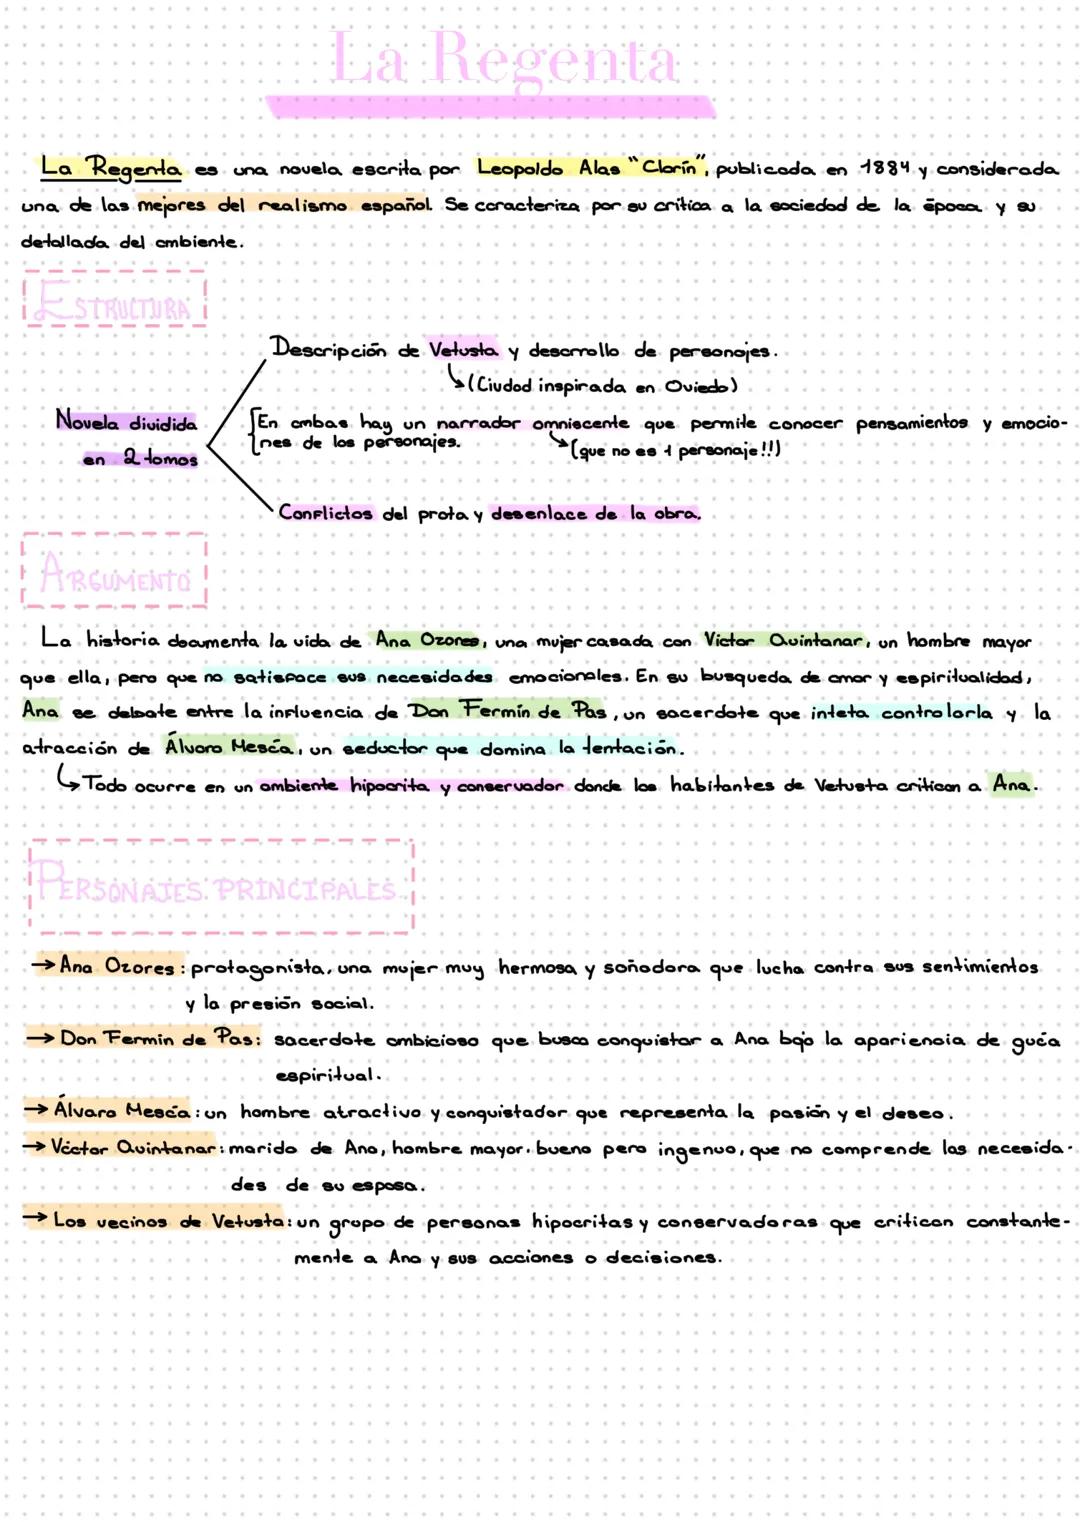 La Regenta
La Regenta es una novela escrita por Leopoldo Alas "Clarín", publicada en 1884 y considerada
una de las mejores del realismo español. Se caracteriza por su crítica a la sociedad de la época y su
detallada del ambiente.
ESTRUCTURA
Descripción de Vetusta y desarrollo de personajes.
(Ciudad inspirada en Oviedo)
Novela dividida
en 2 tomos
En ambas hay un narrador omnisciente que permite conocer pensamientos y emocio-
nes de los personajes.
(que no es 1 personaje!!)
Conflictos del prota y desenlace de la obra.
ARGUMENTO
La historia documenta la vida de Ana Ozores, una mujer casada con Víctor Quintanar, un hombre mayor
que ella, pero que no satisface sus necesidades emocionales. En su busqueda de amor y espiritualidad,
Ana se debate entre la influencia de Don Fermín de Pas, un sacerdote que inteta controlarla y la
atracción de Álvaro Mesía, un seductor que domina la tentación.
Todo ocurre en un ambiente hipocrita y conservador donde los habitantes de Vetusta critican a Ana.
PERSONAJES PRINCIPALES
→ Ana Ozores: protagonista, una mujer muy hermosa y soñadora que lucha contra sus sentimientos
y la presión social.
→ Don Fermín de Pas: sacerdote ambicioso que busca conquistar a Ana bajo la apariencia de guía
espiritual.
→ Álvaro Mesía: un hombre atractivo y conquistador que representa la pasión y el deseo.
→ Víctor Quintanar: marido de Ana, hombre mayor, bueno pero ingenuo, que no comprende las necesida-
des de su esposa.
→ Los vecinos de Vetusta: un grupo de personas hipocritas y conservadoras que critican constante-
mente a Ana y sus acciones o decisiones.